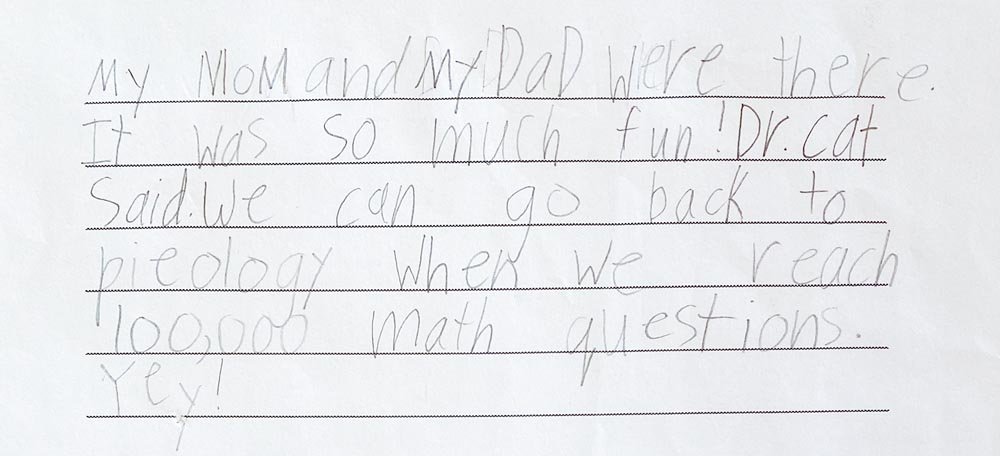 My MoM and My DaD Were there.
It was so much fun! Dr. cat
Said. We can go back to
pieology when we reach
100,000 math questions.
Yey!